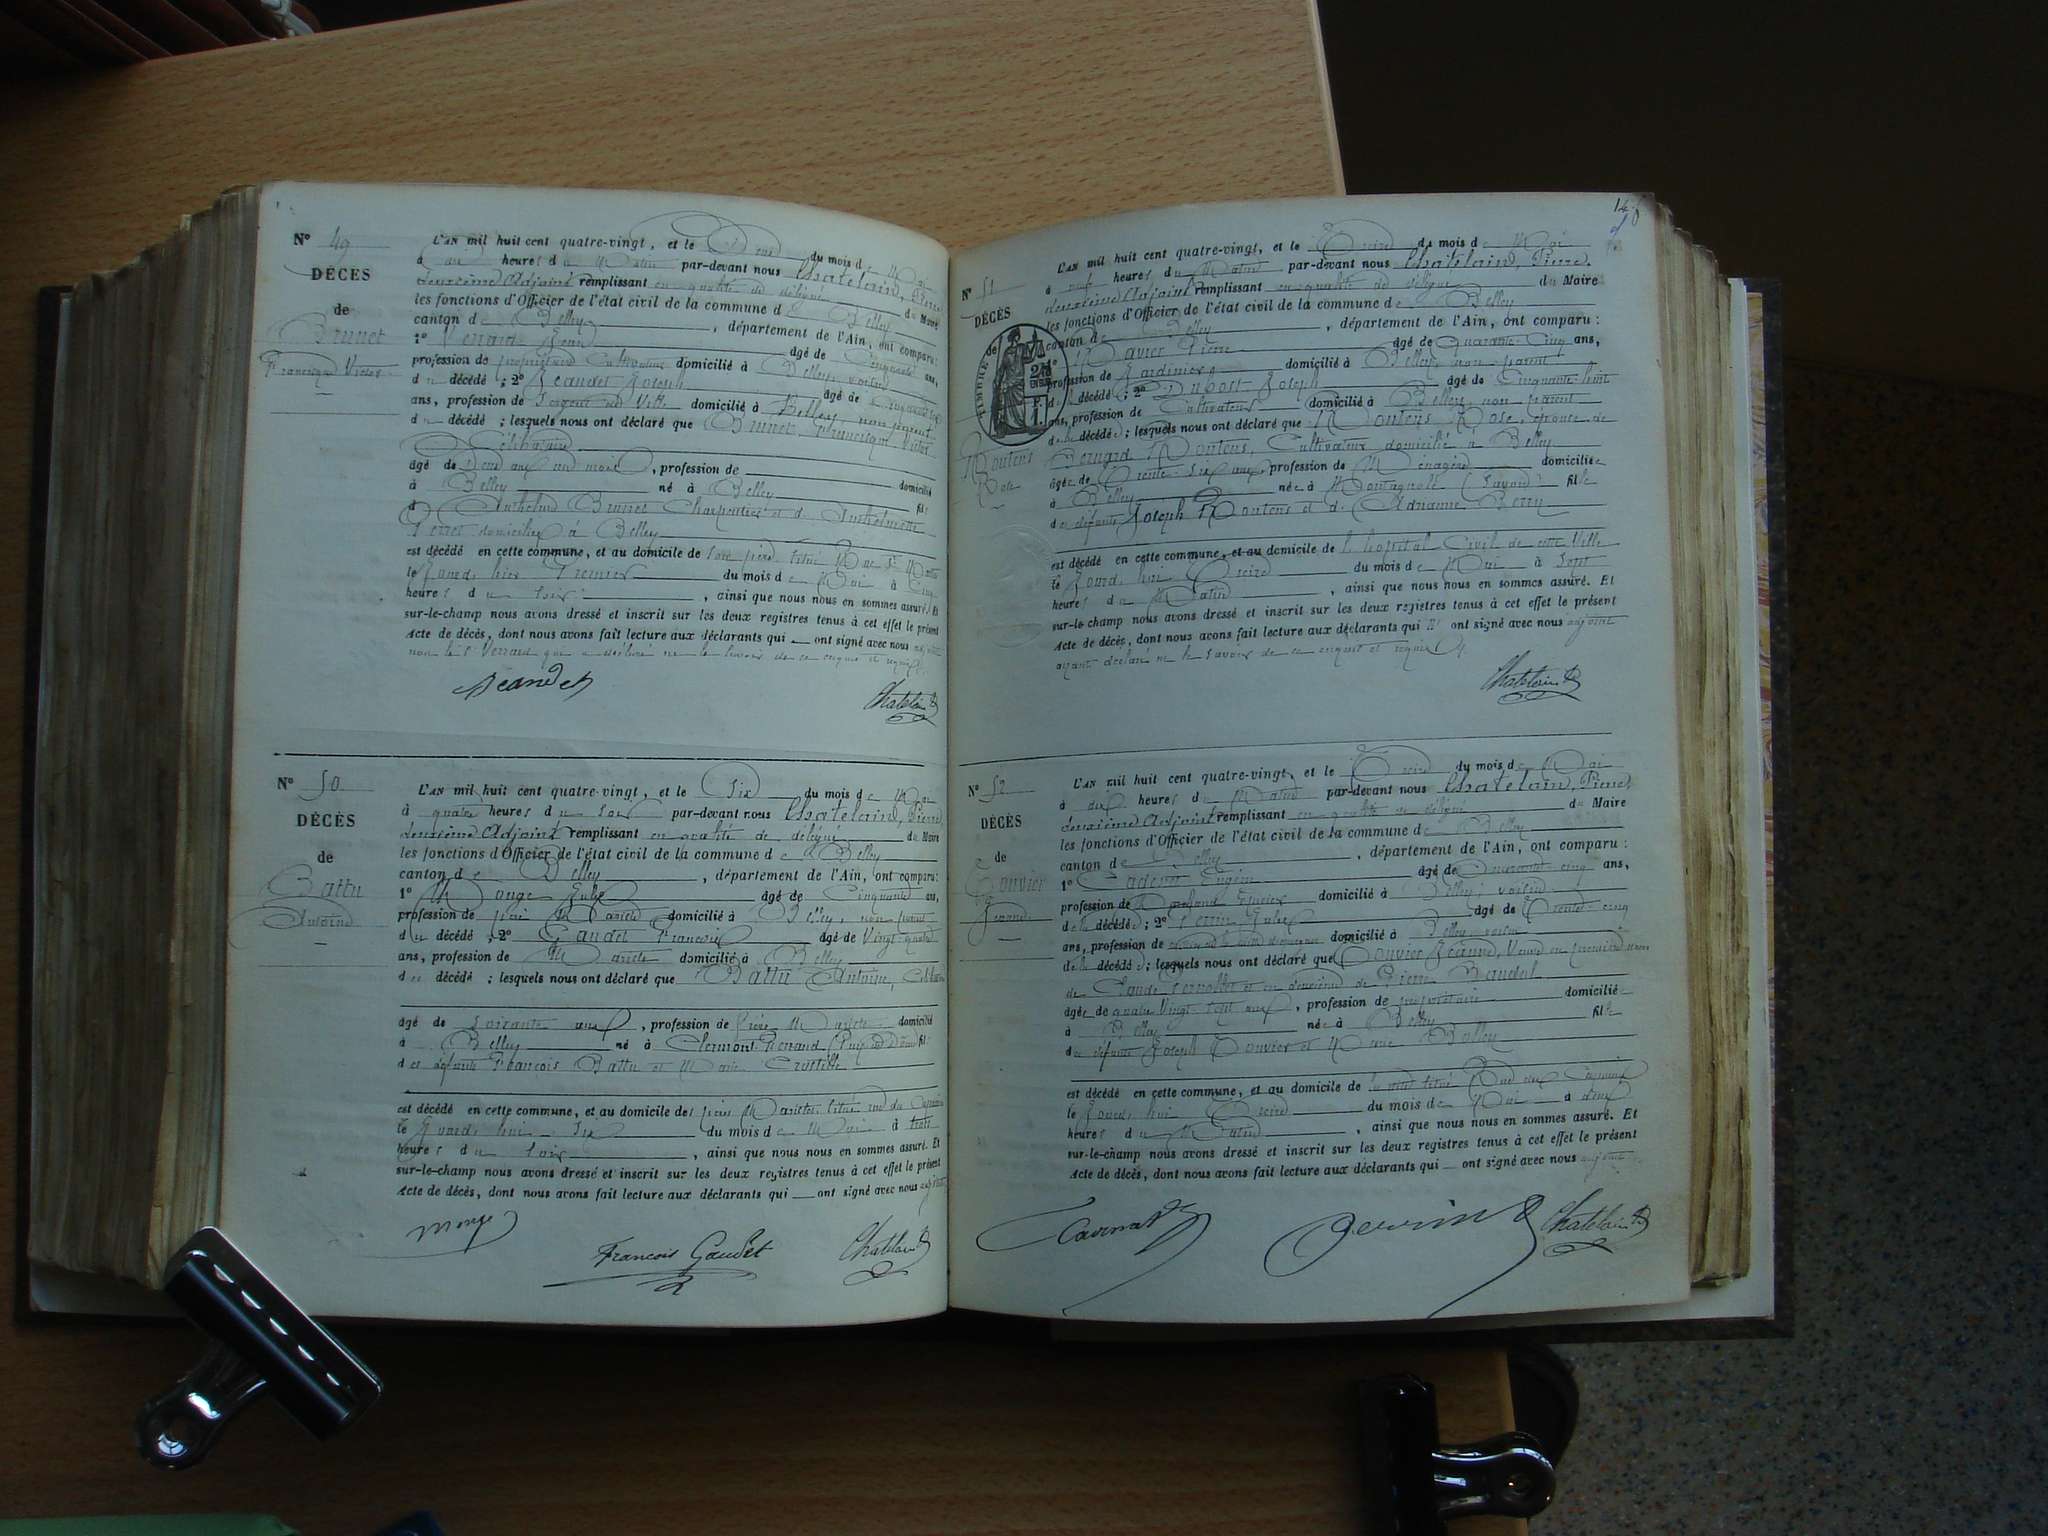 N° 49
DÉCÈS
de
Brunet
Francisque Victor
L'AN mil huit cent quatre-vingt, et le Deux du mois de Mai
à heures du Matin par-devant nous Chatelain, Pierre
deuxième Adjoint remplissant en qualité de délégué du Maire
les fonctions d'Officier de l'état civil de la commune de Belley
canton de Belley, département de l'Ain, ont comparu :
1° Jean âgé de Cinquante ans,
profession de propriétaire Cultivateur domicilié à Belley, voisin
du décédé ; 2° Jeandet Joseph âgé de
ans, profession de Sergent de Ville domicilié à Belley, non parent
du décédé ; lesquels nous ont déclaré que Brunet Francisque Victor
Célibataire
âgé de Deux ans un mois, profession de domicilié
à Belley né à Belley fils
d Anthelme Brunet Charpentier et d Anthelmette
domiciliés à Belley
est décédé en cette commune, et au domicile de son père situé Rue St
le Jourd. hier Premier du mois de Mai à Cinq
heures du soir, ainsi que nous nous en sommes assuré. Et
sur-le-champ nous avons dressé et inscrit sur les deux registres tenus à cet effet le présent
Acte de décès, dont nous avons fait lecture aux déclarants qui ont signé avec nous adjoint
non le Sr Verrard qui a déclaré ne le savoir de ce enquis et requis
Jeandet
Chatelain
N° 50
DÉCÈS
de
Battu
Antoine
L'AN mil huit cent quatre-vingt, et le Six du mois de Mai
à quatre heures du soir par-devant nous Chatelain, Pierre
deuxième Adjoint remplissant en qualité de délégué du Maire
les fonctions d'Officier de l'état civil de la commune de Belley
canton de Belley, département de l'Ain, ont comparu :
1° Monge Jules âgé de Cinquante ans,
profession de père Mariste domicilié à Belley, non parent
du décédé ; 2° Gaudet François âgé de Vingt-quatre
ans, profession de Mariste domicilié à Belley
du décédé ; lesquels nous ont déclaré que Battu Antoine, Célibataire
âgé de soixante ans, profession de frère Mariste domicilié
à Belley né à Clermont-Ferrand (Puy de Dôme) fils
des défunts François Battu et Marie
est décédé en cette commune, et au domicile des pères Maristes situé rue des Capucins
le Jourd. hui Six du mois de Mai à trois
heures du soir, ainsi que nous nous en sommes assuré. Et
sur-le-champ nous avons dressé et inscrit sur les deux registres tenus à cet effet le présent
Acte de décès, dont nous avons fait lecture aux déclarants qui ont signé avec nous adjoint
Monge
François Gaudet
Chatelain
14
N° 51
DÉCÈS
de
Routens
Rose
TIMBRE
L'AN mil huit cent quatre-vingt, et le Treize du mois de Mai
à neuf heures du Matin par-devant nous Chatelain, Pierre
deuxième Adjoint remplissant en qualité de délégué du Maire
les fonctions d'Officier de l'état civil de la commune de Belley
canton de Belley, département de l'Ain, ont comparu :
1° Pierre âgé de Quarante-Cinq ans,
profession de Jardinier domicilié à Belley, non parent
de la décédée ; 2° Dupost Joseph âgé de Cinquante-huit
ans, profession de Cultivateur domicilié à Belley, non parent
de la décédée ; lesquels nous ont déclaré que Routens Rose, épouse de
Bernard Routens, Cultivateur domicilié à Belley
âgée de Trente-six ans, profession de Ménagère domiciliée
à Belley née à Montagnole (Savoie) fille
des défunts Joseph Routens et de
est décédée en cette commune, et au domicile de l'hopital Civil de cette Ville
le Jourd. hui Treize du mois de Mai à Sept
heures du Matin, ainsi que nous nous en sommes assuré. Et
sur-le-champ nous avons dressé et inscrit sur les deux registres tenus à cet effet le présent
Acte de décès, dont nous avons fait lecture aux déclarants qui n' ont signé avec nous adjoint
ayant déclaré ne le savoir de ce enquis et requis
Chatelain
N° 52
DÉCÈS
de
Bouvier
Jeanne
L'AN mil huit cent quatre-vingt, et le Treize du mois de Mai
à dix heures du Matin par-devant nous Chatelain, Pierre
deuxième Adjoint remplissant en qualité de délégué du Maire
les fonctions d'Officier de l'état civil de la commune de Belley
canton de Belley, département de l'Ain, ont comparu :
1° Eugène âgé de Quarante-cinq ans,
profession de Marchand Epicier domicilié à Belley, voisin
de la décédée ; 2° Perrin Jules âgé de Trente-cinq
ans, profession de domicilié à Belley, voisin
de la décédée ; lesquels nous ont déclaré que Bouvier Jeanne, Veuve en première noces
de Claude et en deuxième de Pierre
âgée de quatre Vingt sept ans, profession de propriétaire domiciliée
à Belley née à Belley fille
des défunts Joseph Bouvier et
est décédée en cette commune, et au domicile de situé Rue des Capucins
le Jourd. hui Treize du mois de Mai à deux
heures du Matin, ainsi que nous nous en sommes assuré. Et
sur-le-champ nous avons dressé et inscrit sur les deux registres tenus à cet effet le présent
Acte de décès, dont nous avons fait lecture aux déclarants qui ont signé avec nous adjoint
Perrin
Chatelain